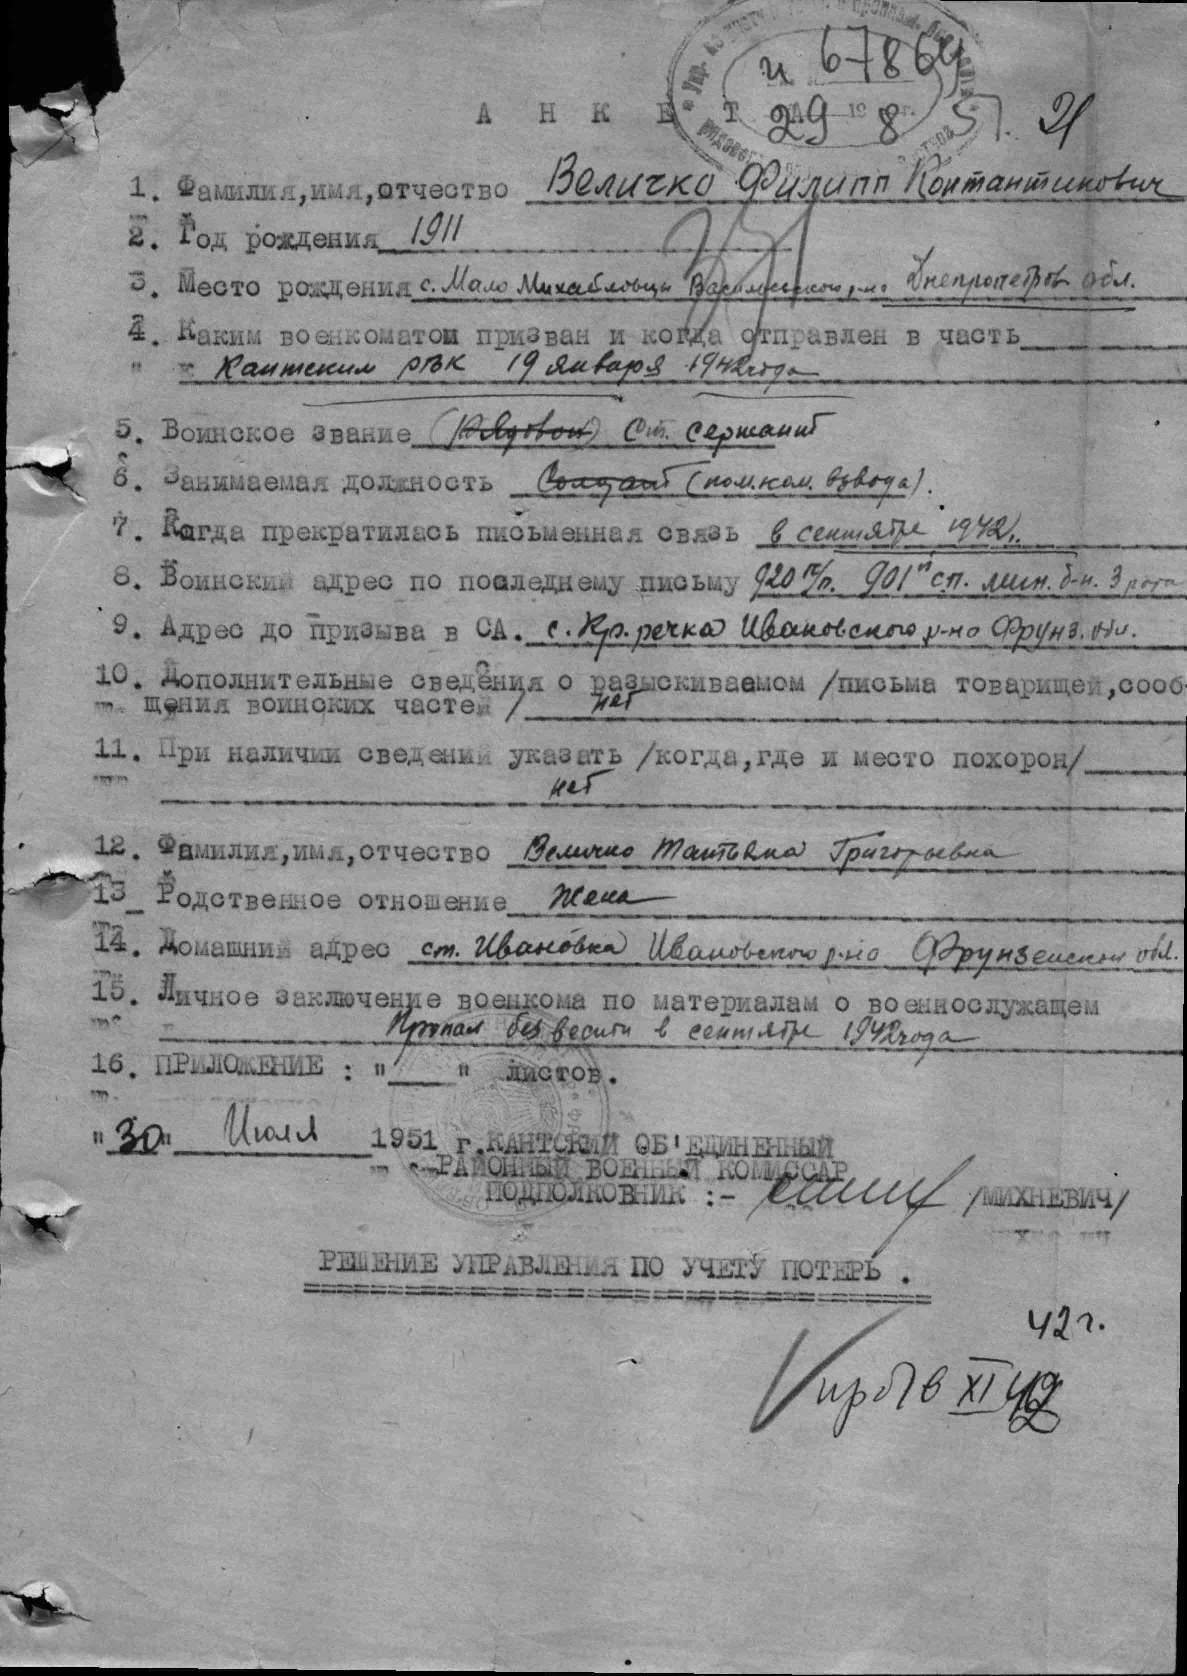 и 67864
29 8 51. 21
А Н К Е Т А
1. Фамилия,имя,отчество Величко Филипп Контантинович
2. Год рождения 1911
3. Место рождения с. Мало Михайловцы Васильевского р-на Днепропетров обл.
4. Каким военкоматом призван и когда отправлен в часть
Кантским РВК 19 января 1942 года
5. Воинское звание (Рядовой) Ст. сержант
6. Занимаемая должность Солдат (пом. ком. взвода).
7. Когда прекратилась письменная связь в сентябре 1942 г.
8. Воинский адрес по последнему письму 920 п/п. 901 сп. мин. б-н. 3 рота
9. Адрес до призыва в СА. с. Кр. речка Ивановского р-на Фрунз. обл.
10. Дополнительные сведения о разыскиваемом /письма товарищей,сооб-
щения воинских частей / нет
11. При наличии сведений указать /когда,где и место похорон/
нет
12. Фамилия,имя,отчество Величко Татьяна Григорьевна
13_ Родственное отношение Жена
14. Домашний адрес ст. Ивановка Ивановского р-на Фрунзенской обл.
15. Личное заключение военкома по материалам о военнослужащем
Пропал без вести в сентябре 1942 года
16. ПРИЛОЖЕНИЕ : "____" листов.
"30" Июля 1951 г. КАНТСКИЙ ОБ'ЕДИНЕННЫЙ
РАЙОННЫЙ ВОЕННЫЙ КОМИССАР
ПОДПОЛКОВНИК :- /МИХНЕВИЧ/
РЕШЕНИЕ УПРАВЛЕНИЯ ПО УЧЕТУ ПОТЕРЬ .
42 г.
пр б/в XI 42